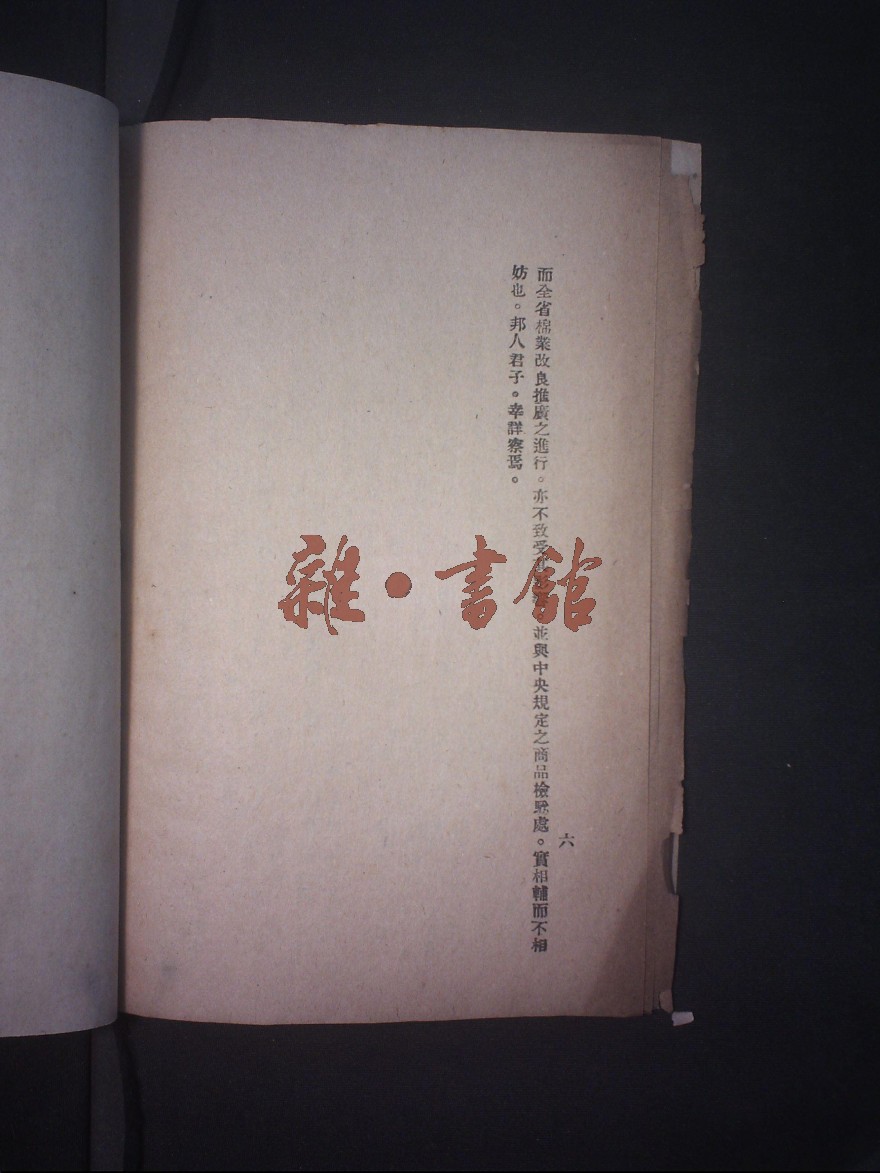 而全省棉業改良推廣之進行。亦不致受 並與中央規定之商品檢驗處。實相輔而不相
妨也。邦人君子。幸詳察焉。
六
雜·書館